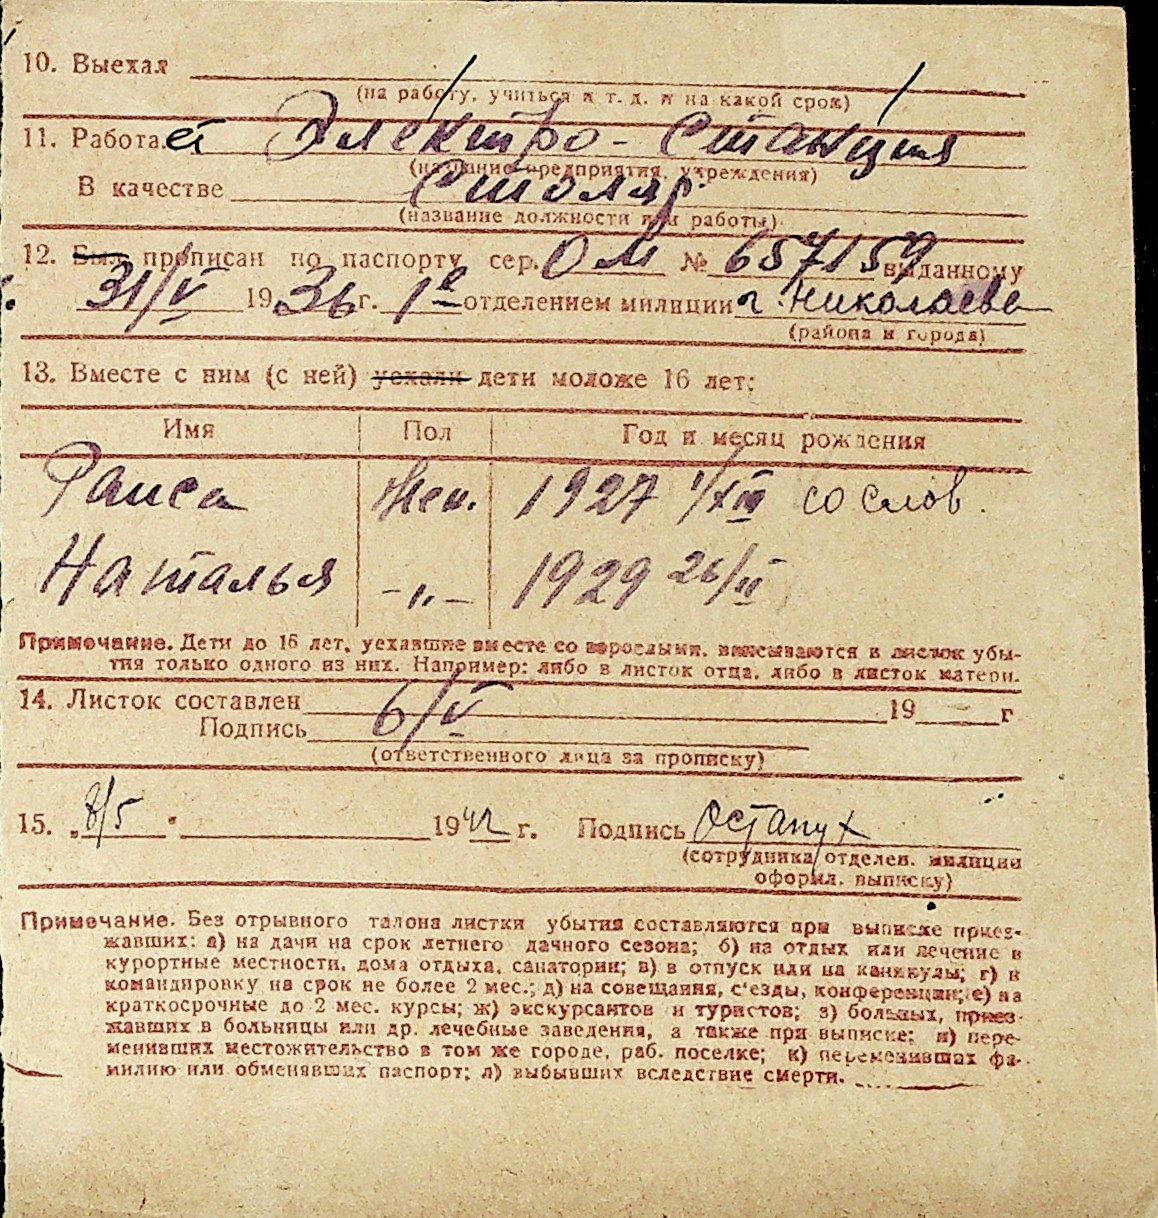 10. Выехал
(на работу, учиться и т. д. и на какой срок)
11. Работает Электро-Станция
(название предприятия, учреждения)
В качестве Столяр.
(название должности или работы)
12. Был прописан по паспорту сер. ОМ № 657159 выданному
31/V 1936 г. 1е отделением милиции г. Николаева
(района и города)
13. Вместе с ним (с ней) уехали дети моложе 16 лет:
Имя Пол Год и месяц рождения
Раиса Жен. 1927 1/XII со слов.
Наталья -"- 1929 26/II
Примечание. Дети до 16 лет, уехавшие вместе со взрослыми, вписываются в листок убы-
тия только одного из них. Например: либо в листок отца, либо в листок матери.
14. Листок составлен 6/V 19 г
Подпись
(ответственного лица за прописку)
15. „8/5" 1942 г. Подпись Остапух
(сотрудника отделен. милиции
оформл. выписку)
Примечание. Без отрывного талона листки убытия составляются при выписке приез-
жавших: а) на дачи на срок летнего дачного сезона; б) на отдых или лечение в
курортные местности, дома отдыха, санатории; в) в отпуск или на каникулы; г) в
командировку на срок не более 2 мес.; д) на совещания, с'езды, конференции; е) на
краткосрочные до 2 мес. курсы; ж) экскурсантов и туристов; з) больных, приез-
жавших в больницы или др. лечебные заведения, а также при выписке: и) пере-
менивших местожительство в том же городе, раб. поселке; к) переменивших фа-
милию или обменявших паспорт; л) выбывших вследствие смерти.